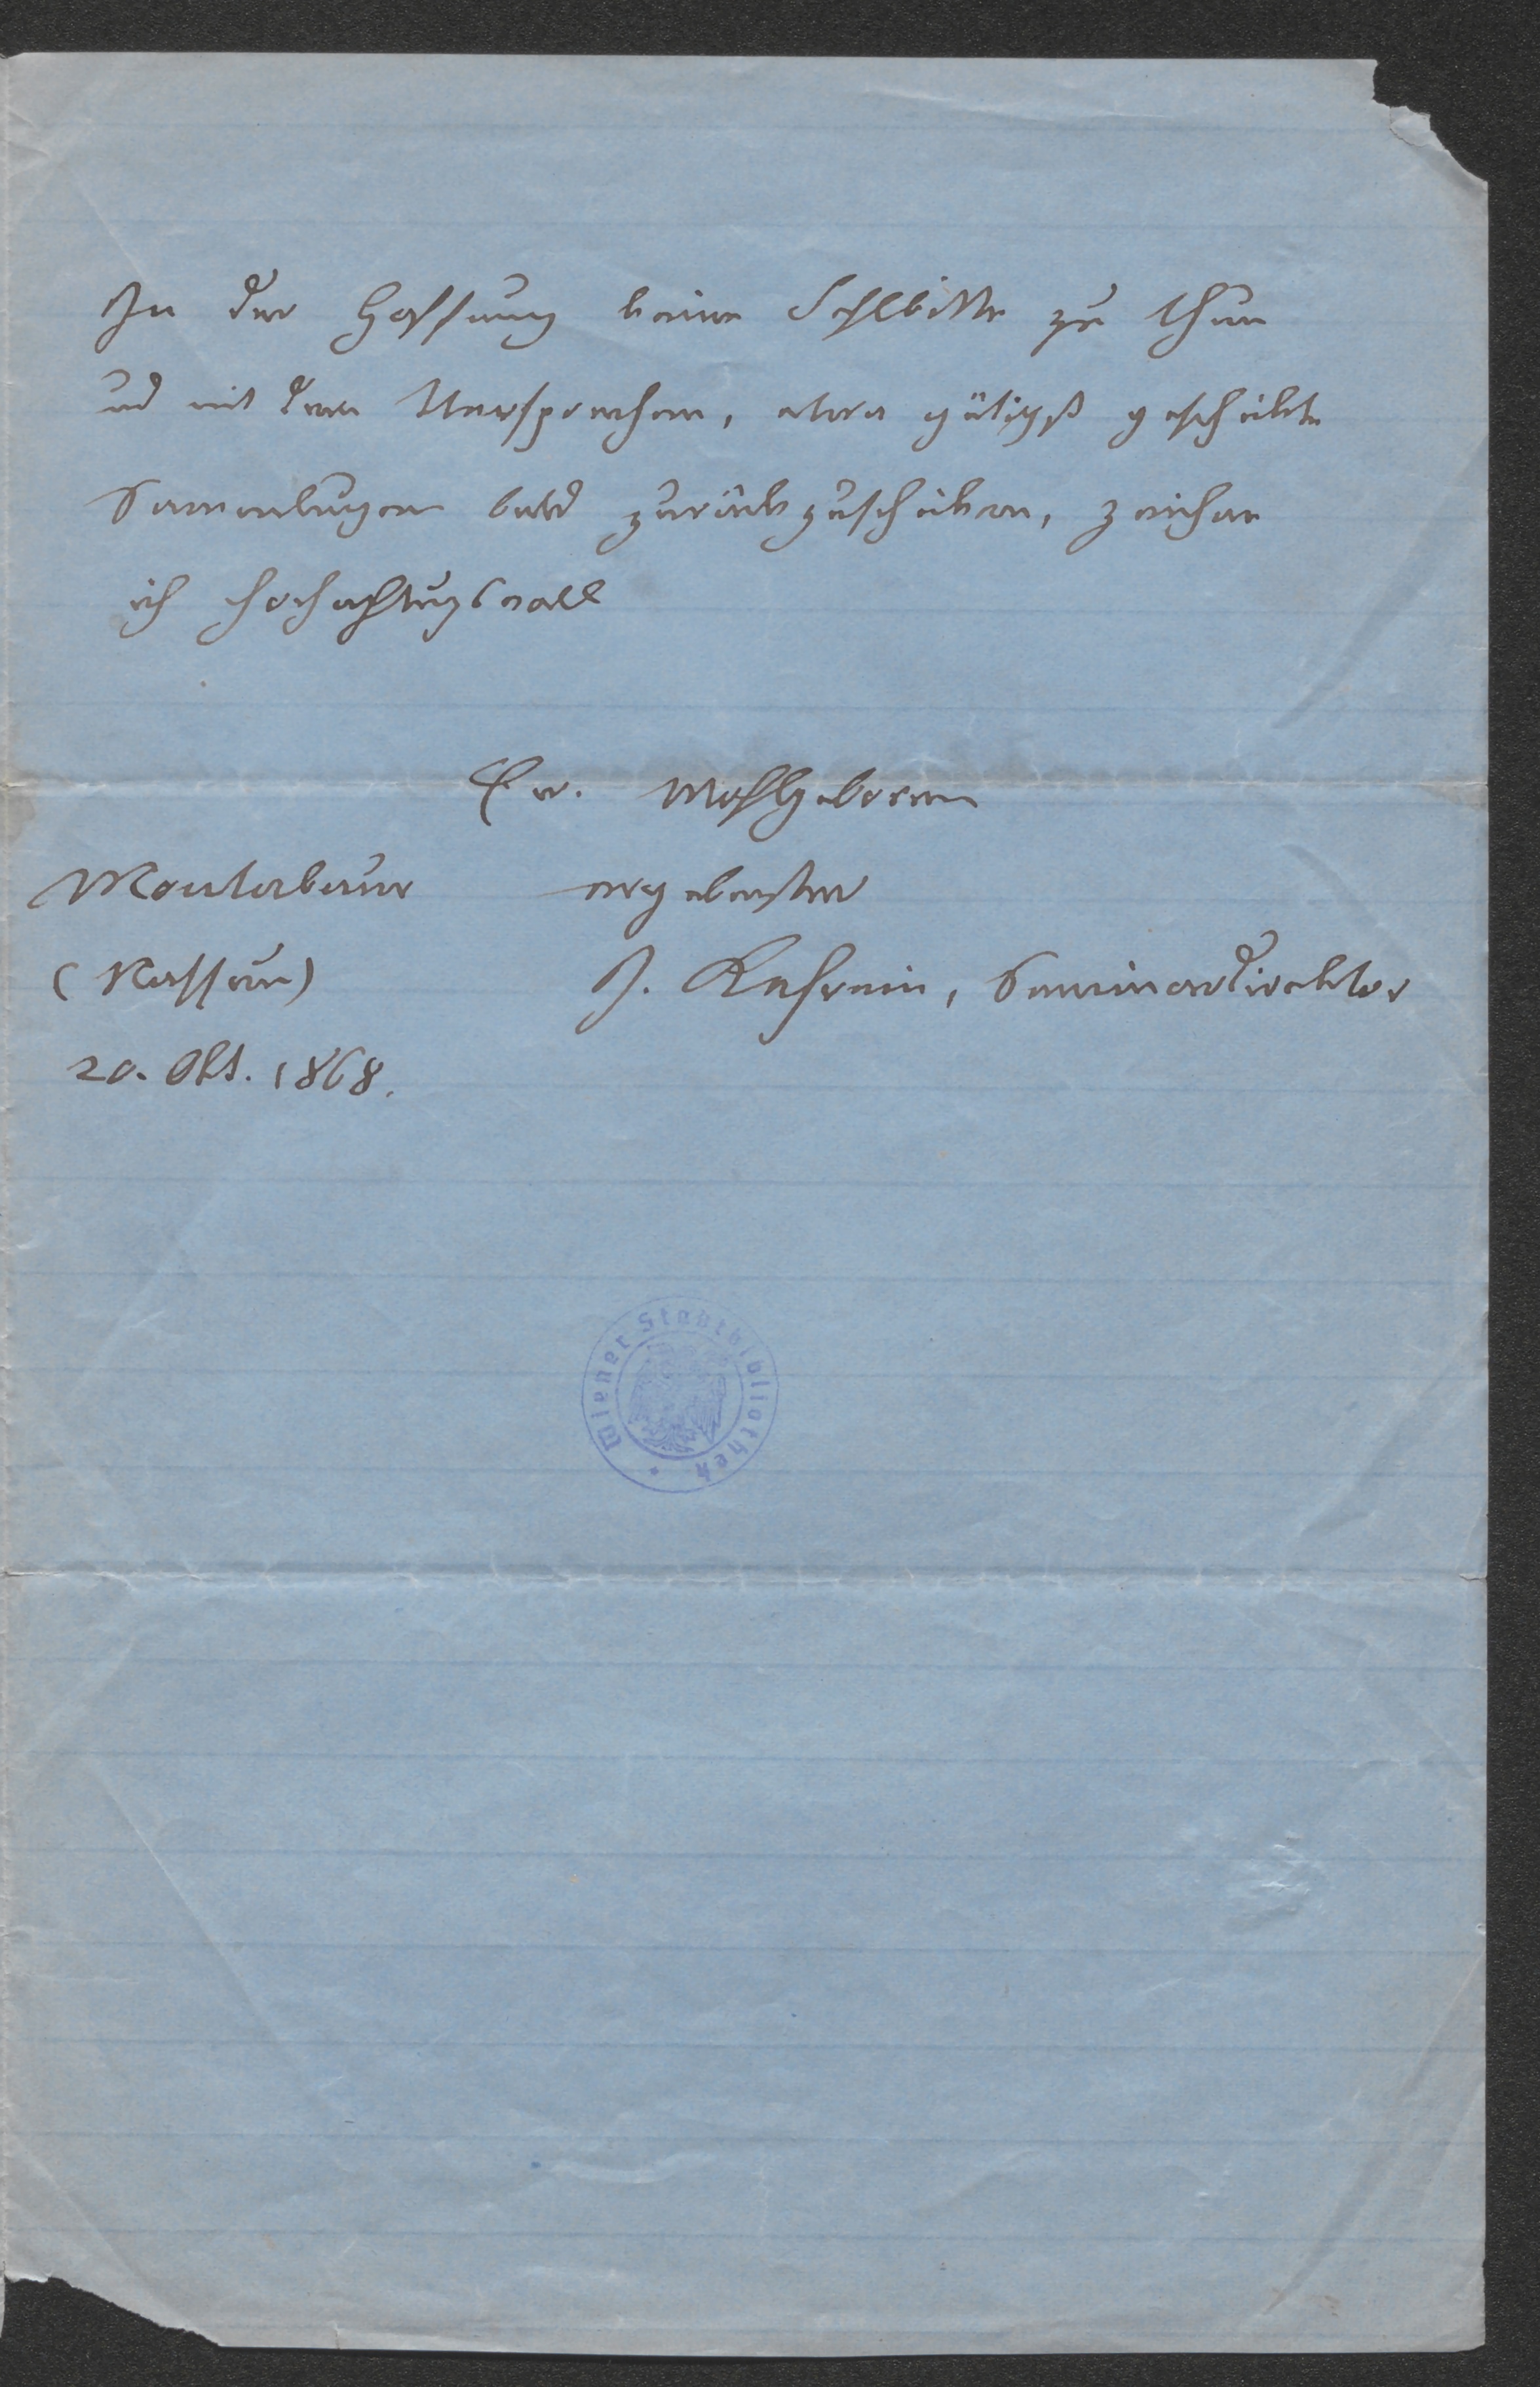 In der Hoffnung keine Fehlbitte zu thun
und mit dem Versprechen, etwa gütigst geschickte
Sammlungen bald zurückzuschicken, zeichne
ich hochachtungsvoll
Ew. Wohlgeboren
Montabaur ergebenster
(Nassau) J. Kehrein, Seminardirektor
20. Okt. 1868.
Wiener Stadtbibliothek